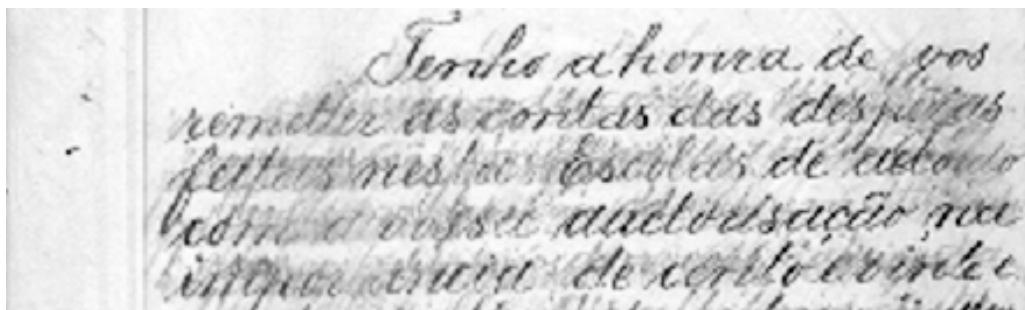 Tenho a honra de vos
remetter as contas das despezas
feitas nesta Escola, de accordo
com a vossa auctorisação, na
importancia de cento e vinte e